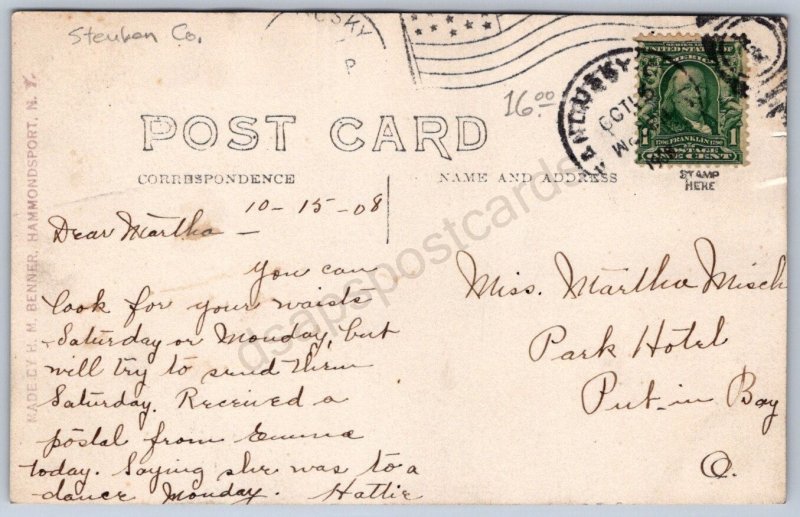 Steuben Co.
16.00
POST CARD
CORRESPONDENCE
NAME AND ADDRESS
STAMP
HERE
SANDUSKY
OCT 15
UNITED STATES OF AMERICA
FRANKLIN
POSTAGE
ONE CENT
1
MADE BY H. M. BENNER, HAMMONDSPORT, N. Y.
10-15-08
Dear Martha —
You can
look for your waists
Saturday or Monday, but
will try to send them
Saturday. Received a
postal from Emma
today. Saying she was to a
dance Monday. Hattie
Miss. Martha Misch
Park Hotel
Put-in Bay
O.
dsapspostcards